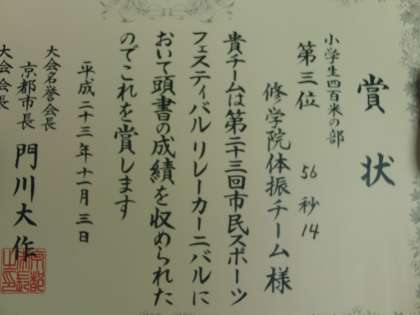 賞状
小学生四百米の部
第三位 56秒14
修学院体振チーム様
貴チームは第二十三回市民スポーツ
フェスティバルリレーカーニバルに
おいて頭書の成績を収められた
のでこれを賞します
平成二十三年十一月三日
大会名誉会長
京都市長 門川大作
大会会長